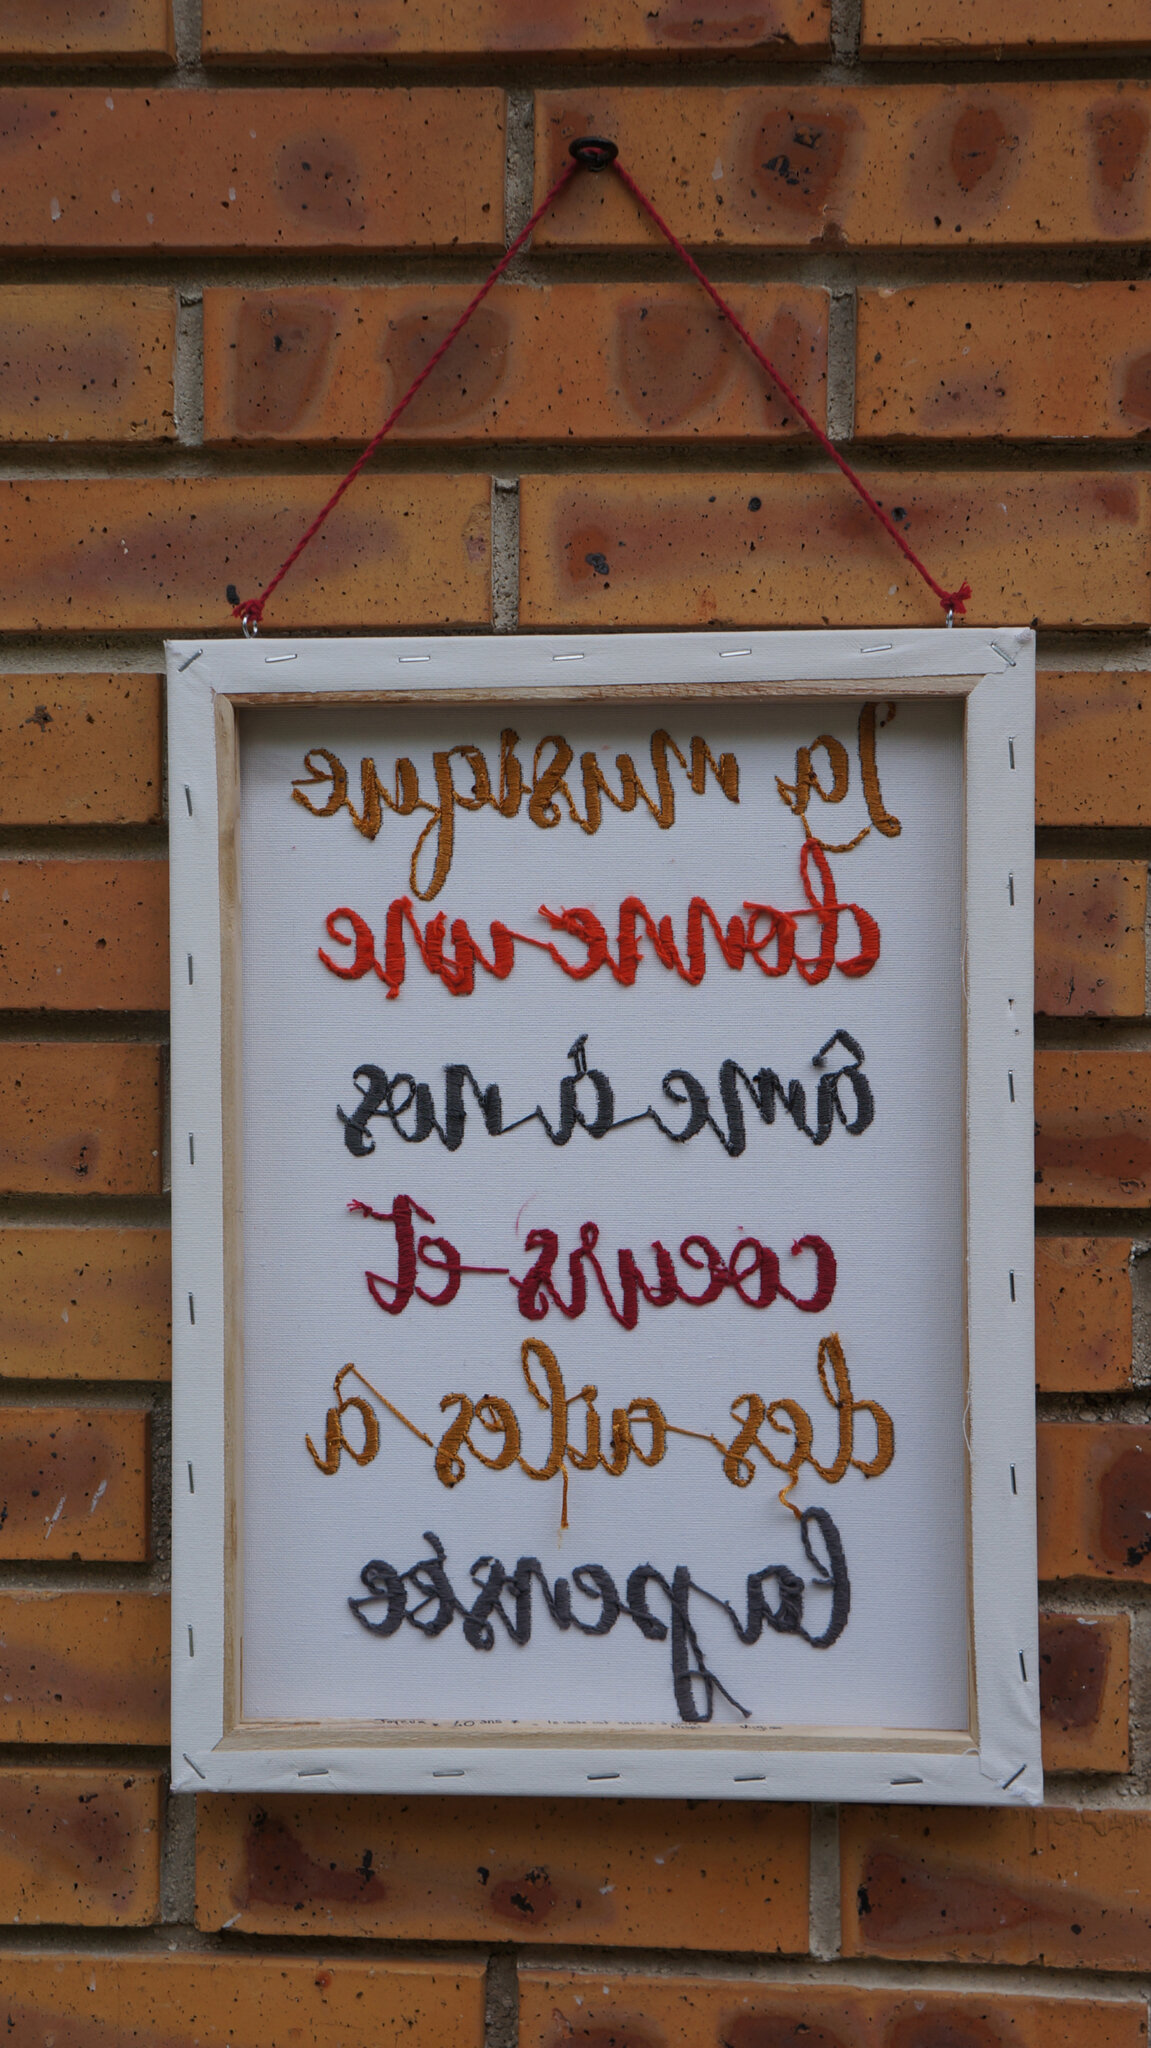 la musique
donne une
âme à nos
coeurs et
des ailes à
la pensée
40 ans